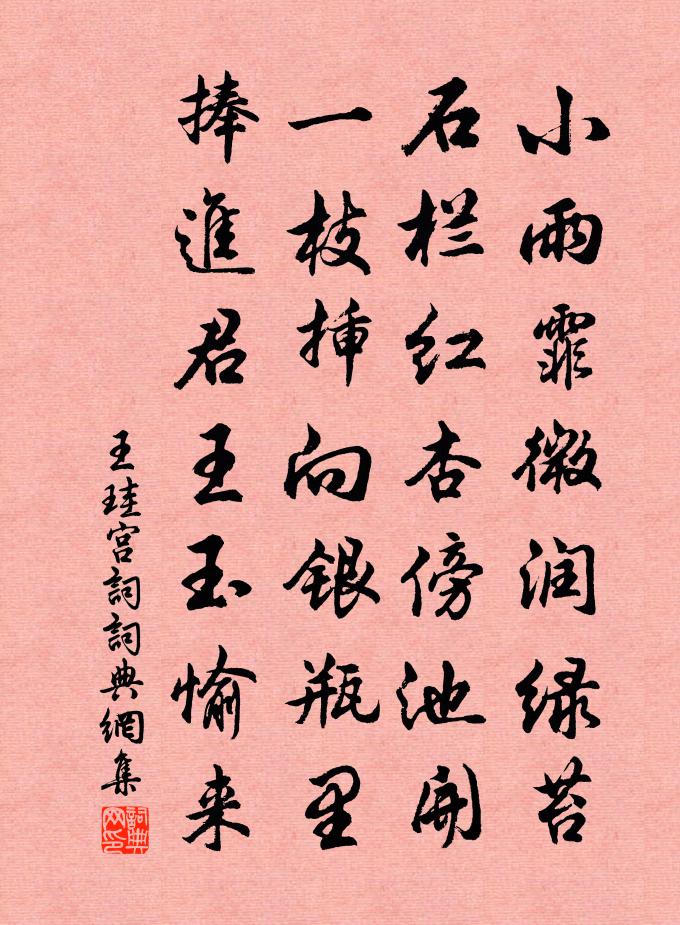 小雨霏微润绿苔
石栏红杏傍池開
一枝插向银瓶里
捧進君王玉愉来
王珪宫詞詞典網集
詞典網印